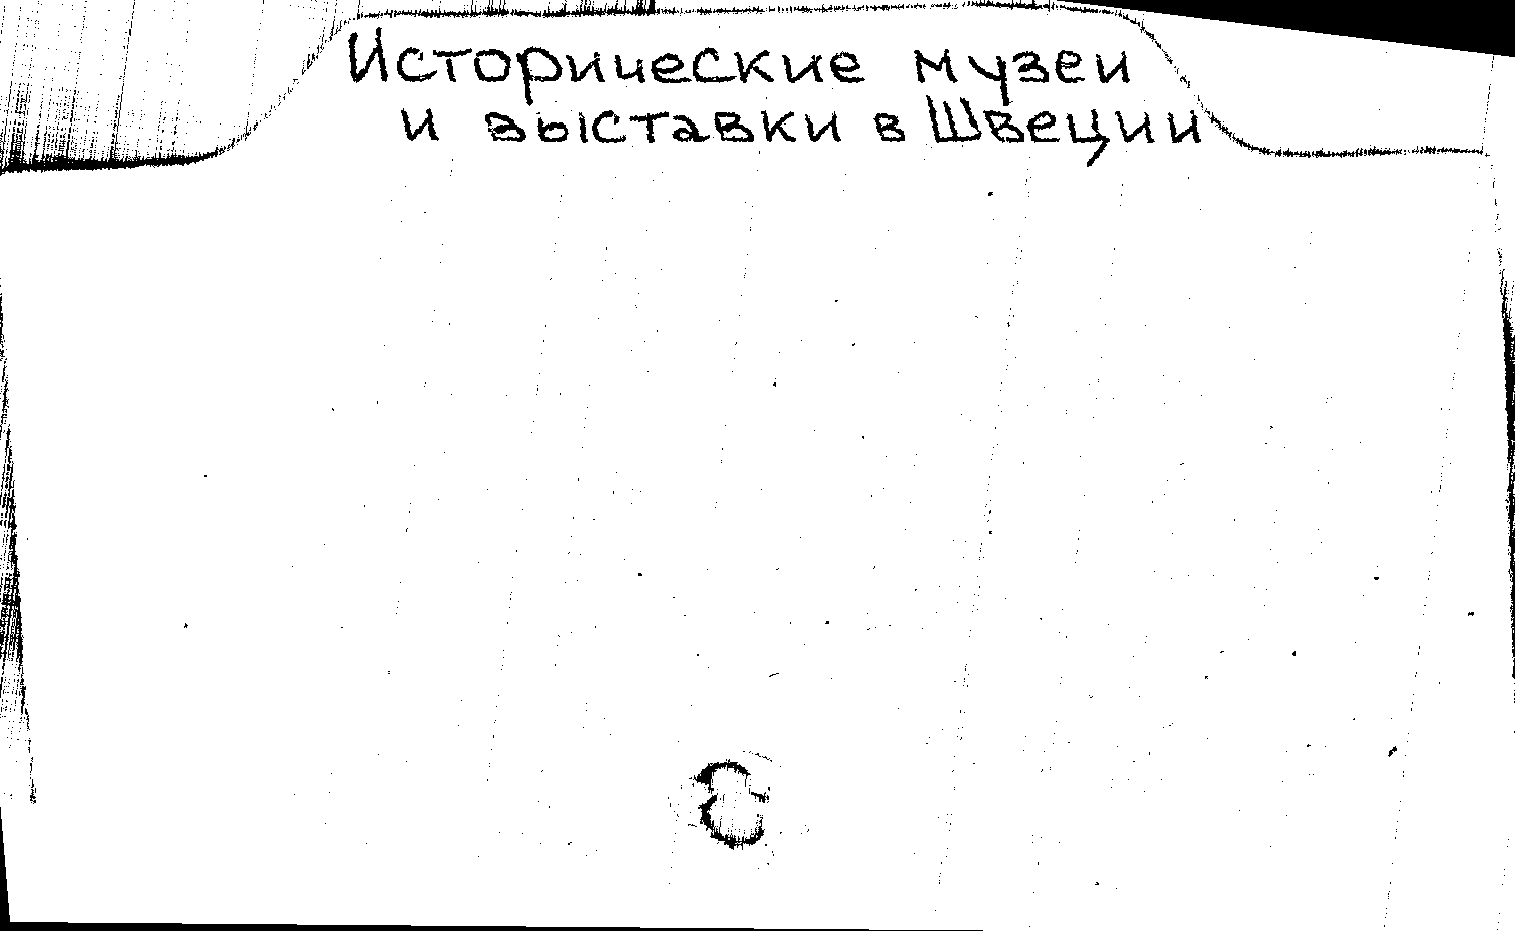 Исторические музеи
и выставки в Швеции